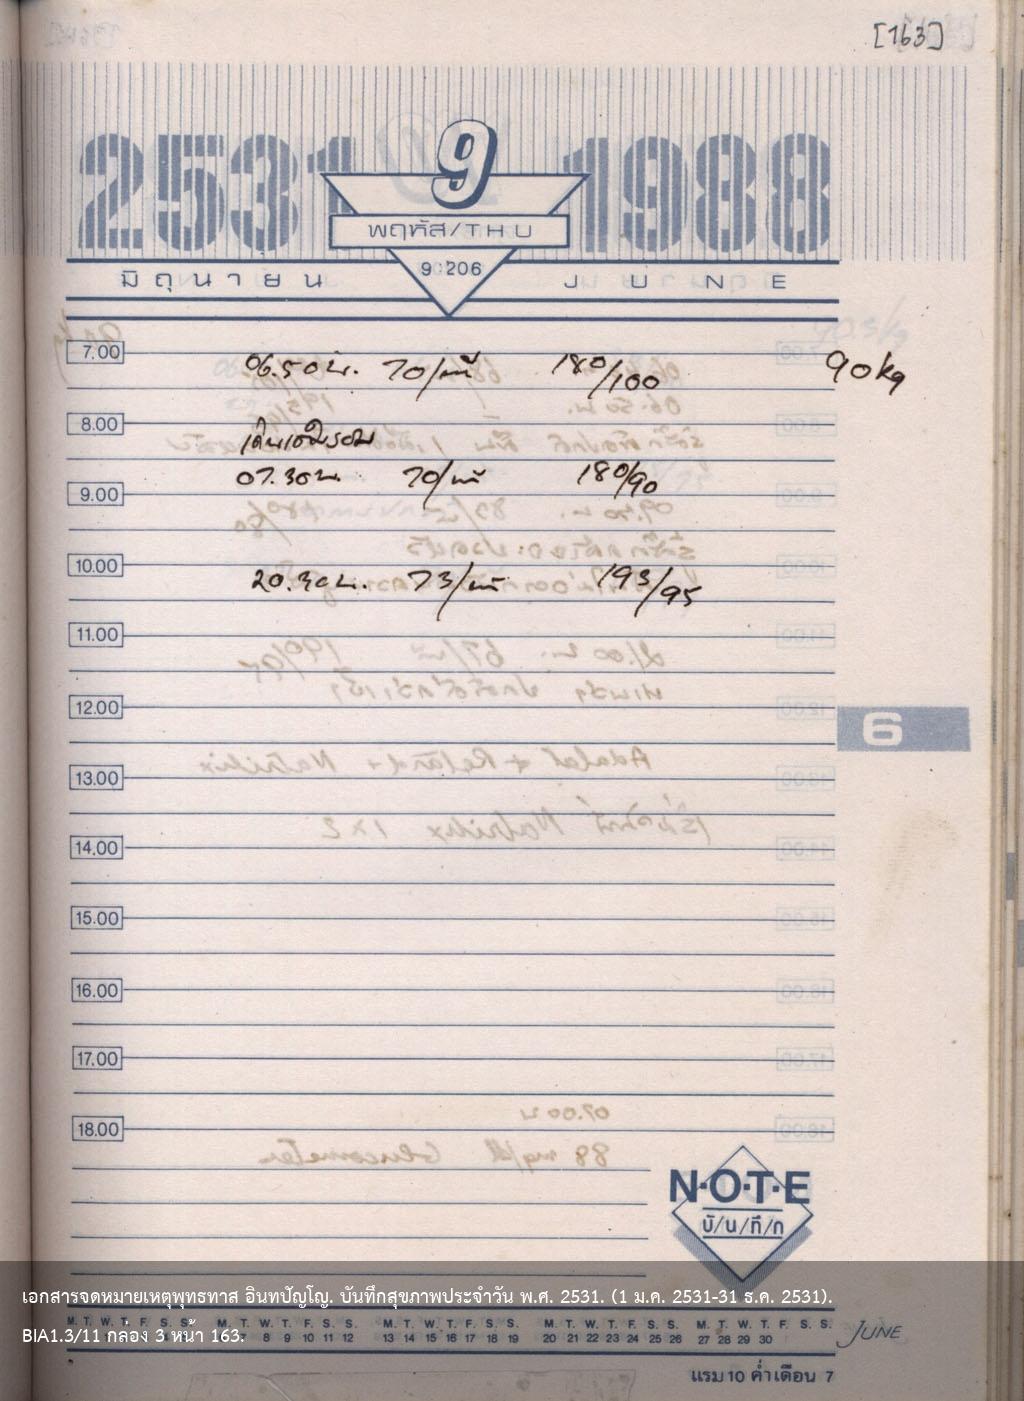 [163]
2531 9 1988
พฤหัส/THU
9:206
มิถุนายน JUNE
7.00 06.50 น. 70/นาที 180/100 90 kg
8.00
07.30 น. 70/นาที 180/90
9.00
10.00 20.30 น. 73/นาที 193/95
11.00
12.00
6
13.00
14.00
15.00
16.00
17.00
18.00
N·O·T·E
บั/น/ทึ/ก
เอกสารจดหมายเหตุพุทธทาส อินทปัญโญ. บันทึกสุขภาพประจำวัน พ.ศ. 2531. (1 ม.ค. 2531-31 ธ.ค. 2531).
M. T. W. T. F. S. S. M. T. W. T. F. S. S. M. T. W. T. F. S. S. M. T. W. T. F. S. S. M. T. W. T. F. S. S. JUNE
8 9 10 11 12 13 14 15 16 17 18 19 20 21 22 23 24 25 26 27 28 29 30
BIA1.3/11 กล่อง 3 หน้า 163.
แรม 10 ค่ำเดือน 7